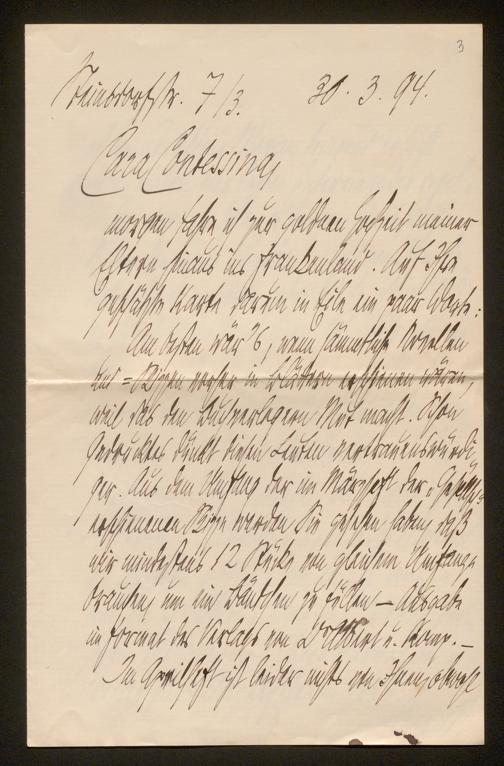 3
Steinsdorfstr. 7/3. 30. 3. 94.
Cara Contessina,
morgen fahre ich zur goldnen Hochzeit meiner
Eltern hinaus ins Frankenland. Auf Ihre
geschätzte Karte darum in Eile ein paar Worte:
Am besten wär's, wenn sämmtliche Novellen
und = Skizzen vorher in Blättern erschienen wären,
weil das den Buchverlegern Mut macht. Schon
Gedrucktes dünkt diesen Leuten vertrauenswürdi
ger. Aus dem Umfang der im Märzheft der „Gesellsch."
erschienenen Skizze werden Sie gesehen haben, daß
wir mindestens 12 Stücke von gleichem Umfange
brauchen, um ein Bändchen zu füllen — Ausgabe
im Format des Verlags von Dr Albert u. Komp. —
Im Heft ist leider nichts von Ihnen, obwohl